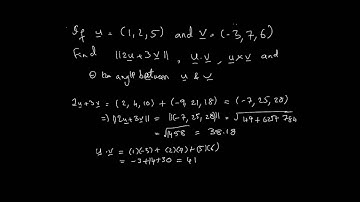 If u = (1, 2, 5) and v = (-3, 7, 6)
Find ||2u+3v||, u.v, u×v and
θ the angle between u & v
2u+3v = (2, 4, 10) + (-9, 21, 18) = (-7, 25, 28)
=> ||2u+3v|| = ||(-7, 25, 28)|| = √49+625+784
= √1458 = 38.18
u.v = (1)(-3) + (2)(7) + (5)(6)
= -3+14+30 = 41